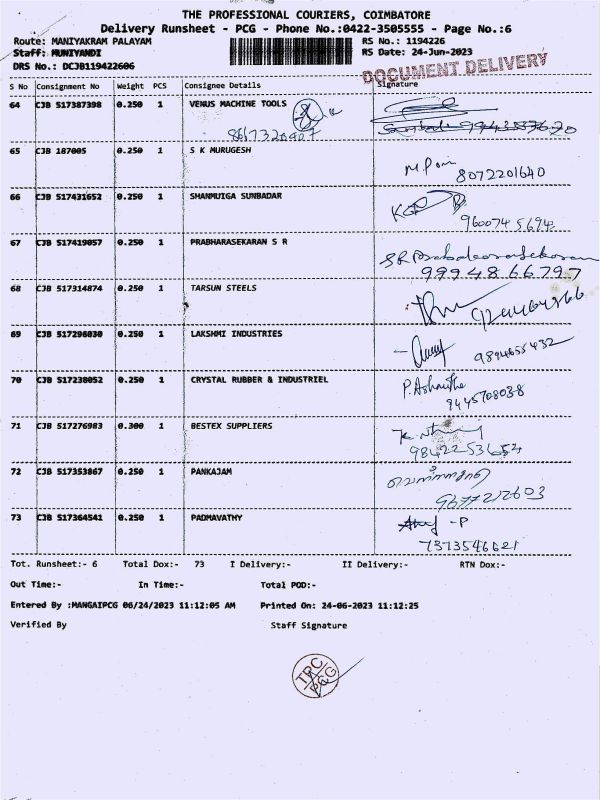 THE PROFESSIONAL COURIERS, COIMBATORE
Delivery Runsheet - PCG - Phone No.:0422-3505555 - Page No.:6
Route: MANIYAKRAM PALAYAM RS No.: 1194226
Staff: MUNIYANDI RS Date: 24-Jun-2023
DRS No.: DCJB119422606
DOCUMENT DELIVERY
S No Consignment No Weight PCS Consignee Details Signature
64 CJB 517387398 0.250 1 VENUS MACHINE TOOLS
65 CJB 187005 0.250 1 S K MURUGESH
M. Poni 8072201640
66 CJB 517431652 0.250 1 SHANMUIGA SUNBADAR
9600745694
67 CJB 517419057 0.250 1 PRABHARASEKARAN S R
9994866797
68 CJB 517314874 0.250 1 TARSUN STEELS
69 CJB 517296030 0.250 1 LAKSHMI INDUSTRIES
9894655432
70 CJB 517238052 0.250 1 CRYSTAL RUBBER & INDUSTRIEL
9445708038
71 CJB 517276983 0.300 1 BESTEX SUPPLIERS
9842253652
72 CJB 517353867 0.250 1 PANKAJAM
9677212603
73 CJB 517364541 0.250 1 PADMAVATHY
7373546621
Tot. Runsheet:- 6 Total Dox:- 73 I Delivery:- II Delivery:- RTN Dox:-
Out Time:- In Time:- Total POD:-
Entered By :MANGAIPCG 06/24/2023 11:12:05 AM Printed On: 24-06-2023 11:12:25
Verified By Staff Signature
TPC
PCG